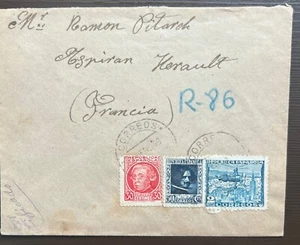 Mr Ramon Pitarch
Aspiran Herault
(Francia)
R-86
CORREOS
CORRE
30
REPUBLICA ESPAÑOLA
CORREOS